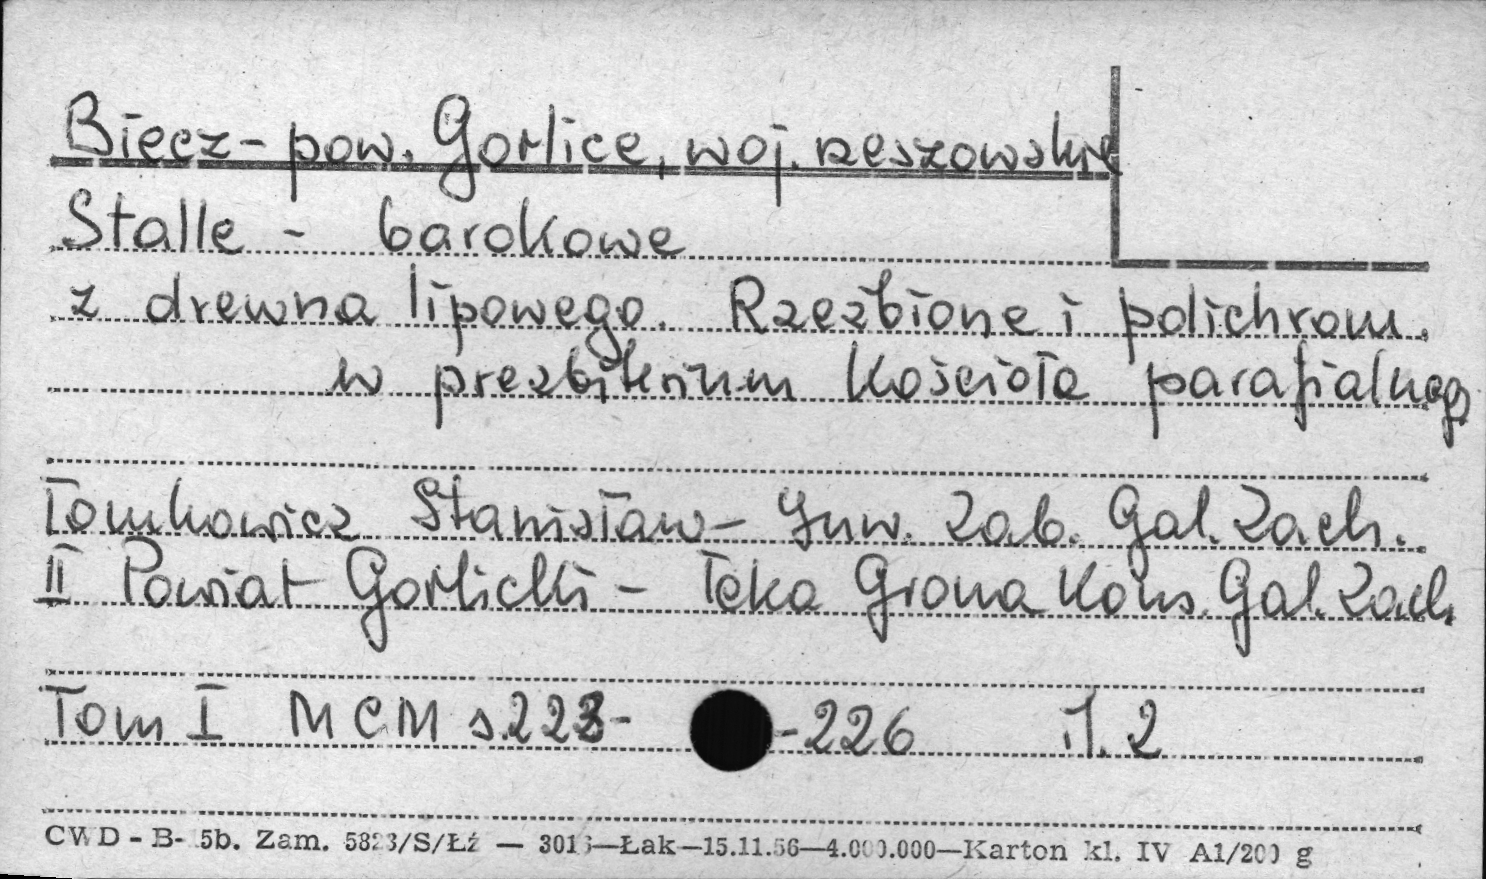 Biecz - pow. Gorlice, woj. rzeszowskie
Stalle - barokowe
z drewna lipowego. Rzeźbione i polichrom.
w prezbiterium Kościoła parafialneg
Tomkowicz Stanisław - Inw. Zab. Gal. Zach.
II Powiat Gorlicki - Teka Grona Kons. Gal. Zach
Tom I MCM s. 223- -226 il. 2
CWD - B- 5b. Zam. 5823/S/Łź — 3016—Łak—15.11.56—4.000.000—Karton kl. IV A1/200 g